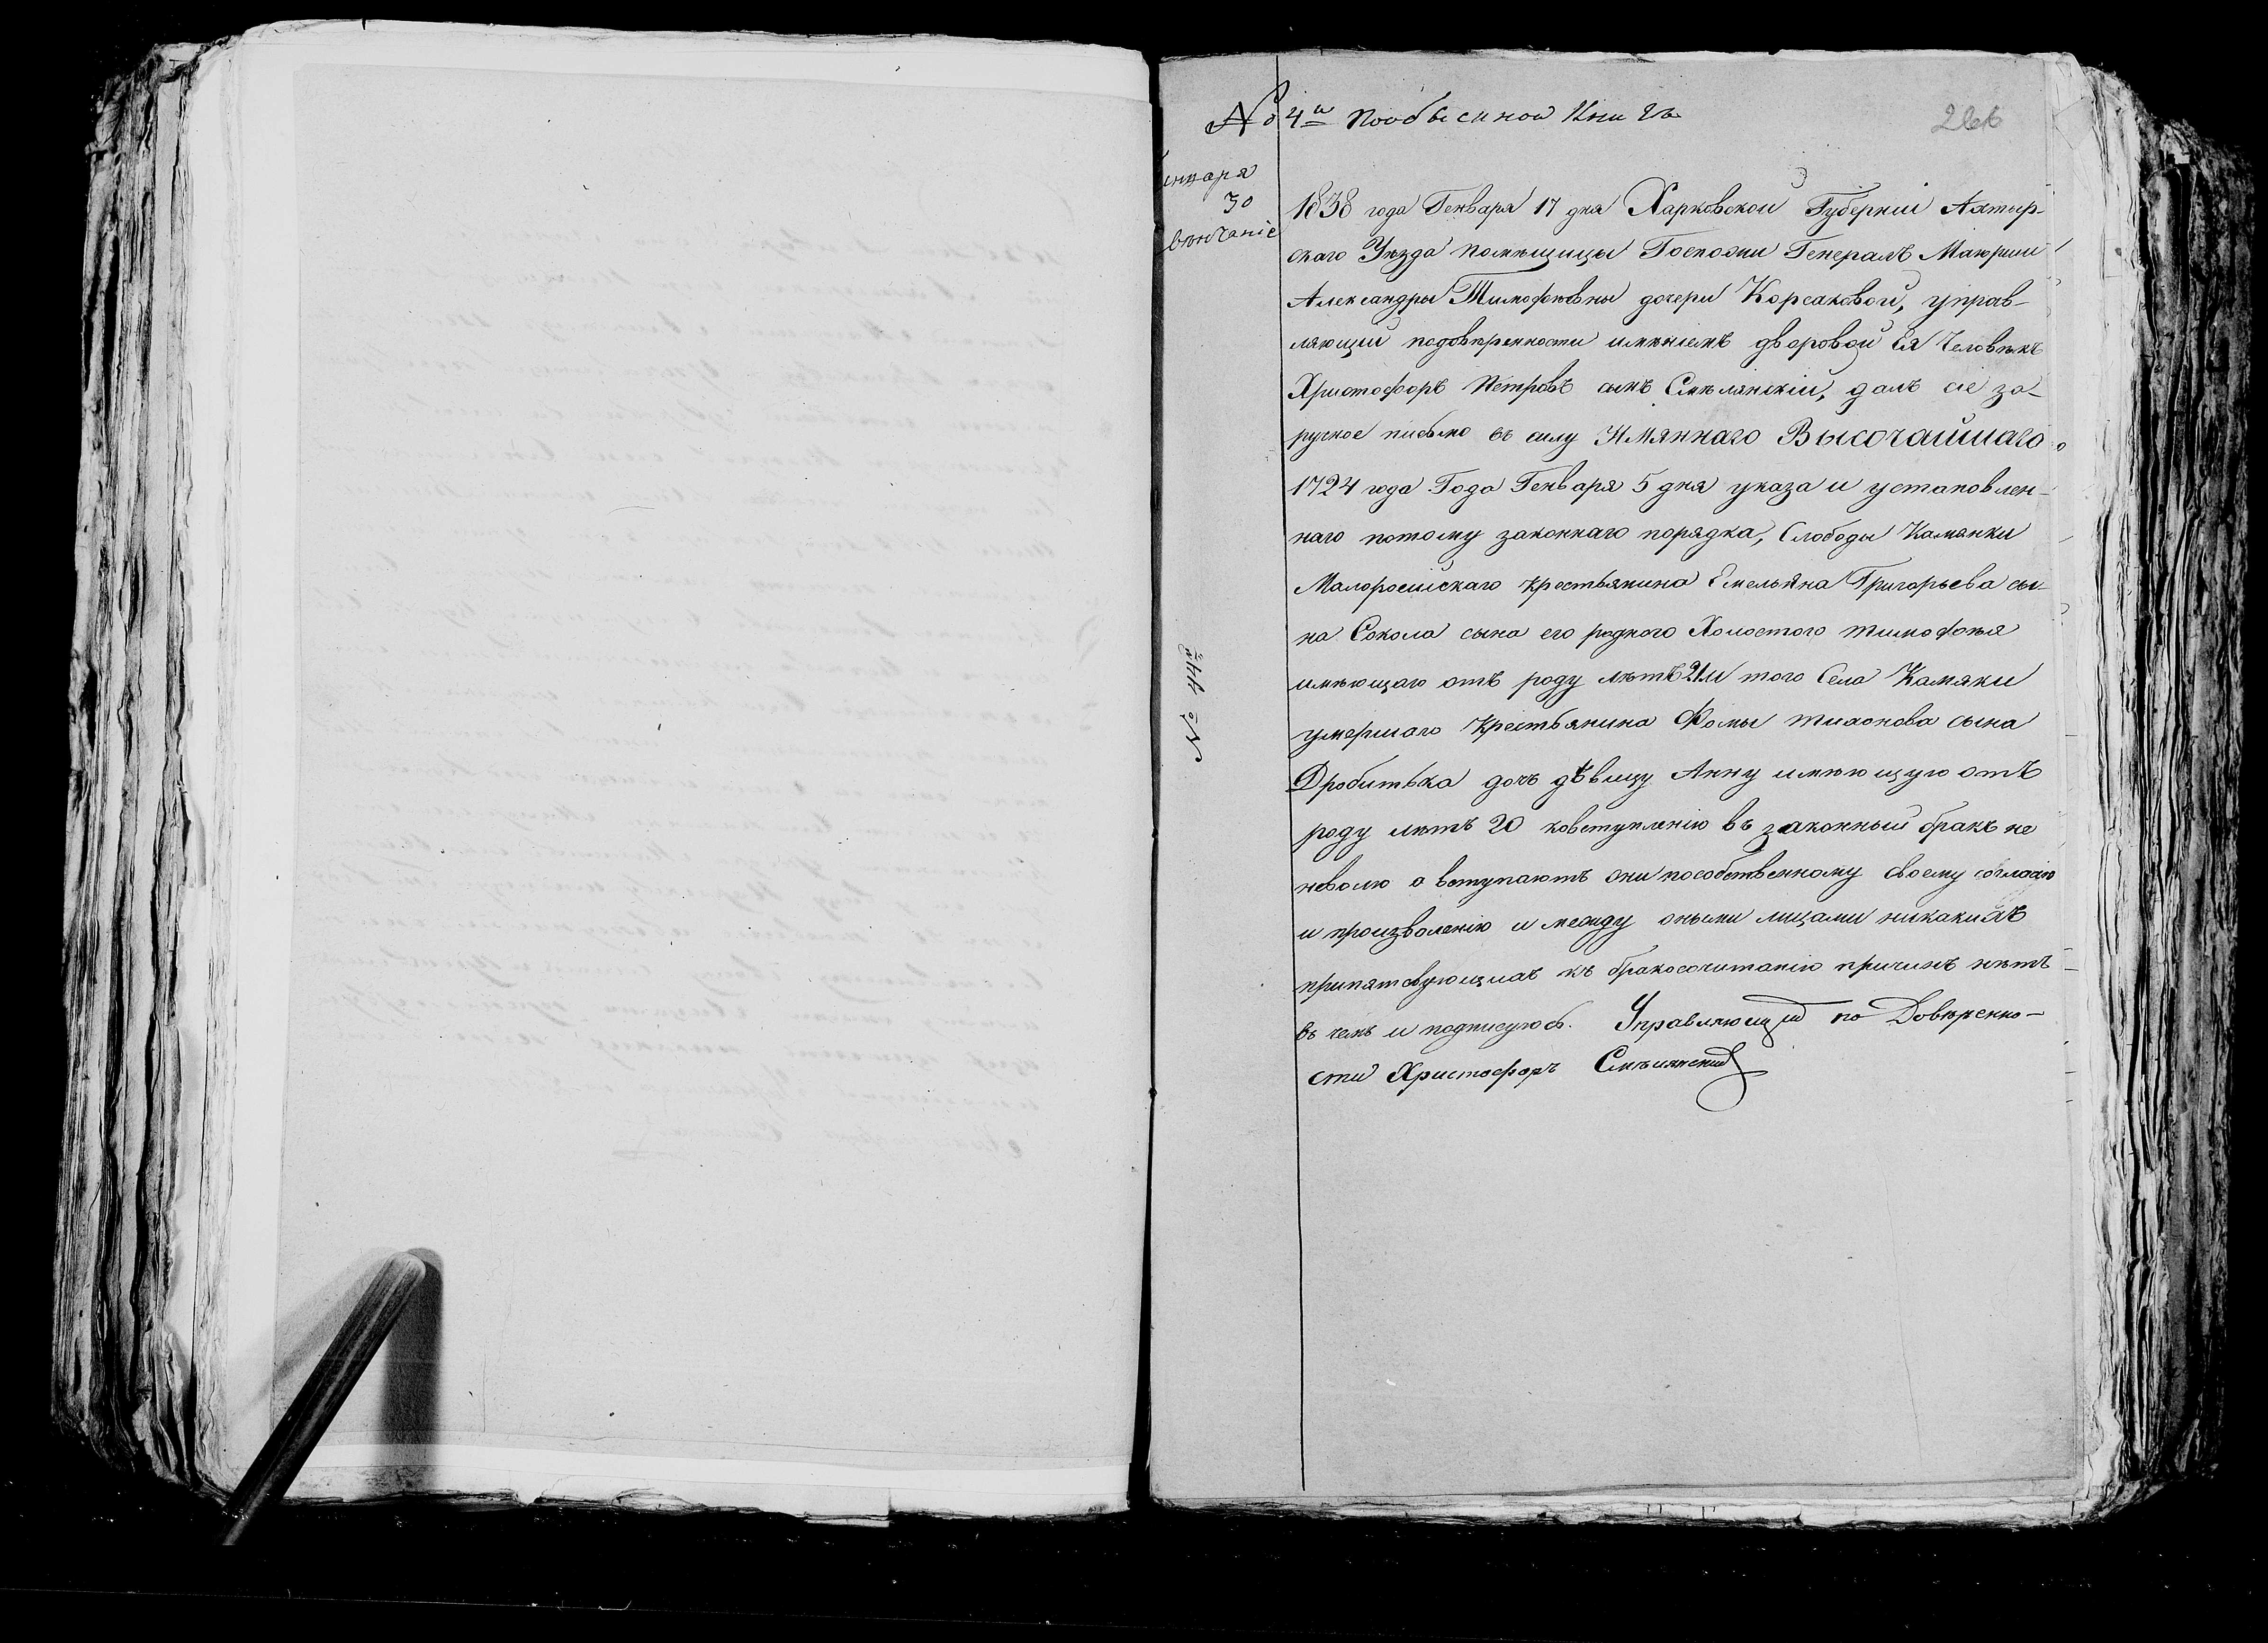 № 4й пообысной Книгѣ
266
Января
30
вѣнчаніе
1838 года Генваря 17 дня Харковской Губерніи Ахтыр-
скаго Уѣзда помѣщицы Госпожи Генералъ Маіорши
Александры Тимофѣевны дочери Корсаковой, управ-
ляющій подовѣренности имѣніемъ дворовой Ея Человѣкъ
Христофоръ Петровъ сынъ Смѣлянскій, далъ сіе за-
ручное письмо въ силу Имяннаго Высочайшаго
1724 года Года Генваря 5 дня указа и установлен-
наго потому законнаго порядка, Слободы Камянки
Малоросійскаго крестьянина Емельяна Григорьева сы-
на Сокола сына его роднаго Холостого Тимофѣя
имѣющаго отъ роду лѣтъ 21 и того Села Камяки
умершаго Крестьянина Фомы Тихонова сына
Дробитька дочь дѣвицу Анну имѣющую отъ
роду лѣтъ 20 ковступленію въ законный бракъ не
неволю а вступаютъ они пособственному своему согласію
и произволенію и между оными лицами никакихъ
припятсвующихъ къ бракосочитанію причинъ нѣтъ
въ чемъ и подписуюсь. Управляющій по Довѣренно-
сти Христофоръ Смѣлянский